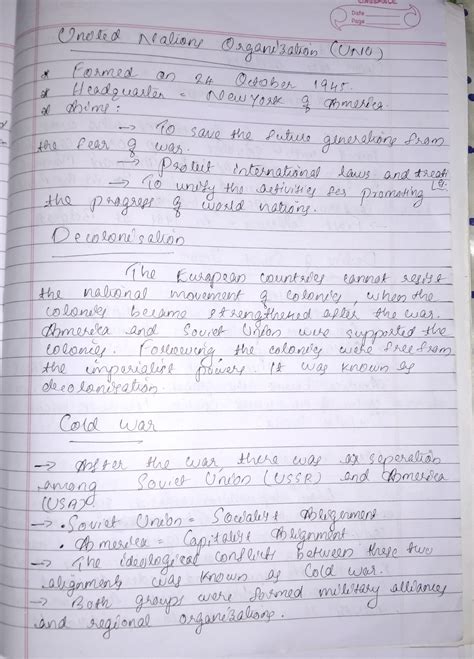 CLASSMATE
Date
Page
United Nations Organization (UNO)
* Formed on 24 October 1945.
* Headquarter = New York of America.
* Aims:
→ To save the future generations from
the fear of war.
→ Protect international laws and
→ To unify the activities for promoting
the progress of world nations.
Decolonisation
The European countries cannot resist
the national movement of colonies, when the
colonies became strengthened after the war.
America and Soviet Union were supported the
colonies. Following the colonies were free from
the imperialist powers. It was known as
decolonisation.
Cold War
→ After the war, there was a seperation
among Soviet Union (USSR) and America
(USA).
→ • Soviet Union = Socialist Alignment
• America = Capitalist Alignment
→ The ideological conflicts between these two
alignments was known as Cold war.
→ Both groups were formed military alliances
and regional organizations.